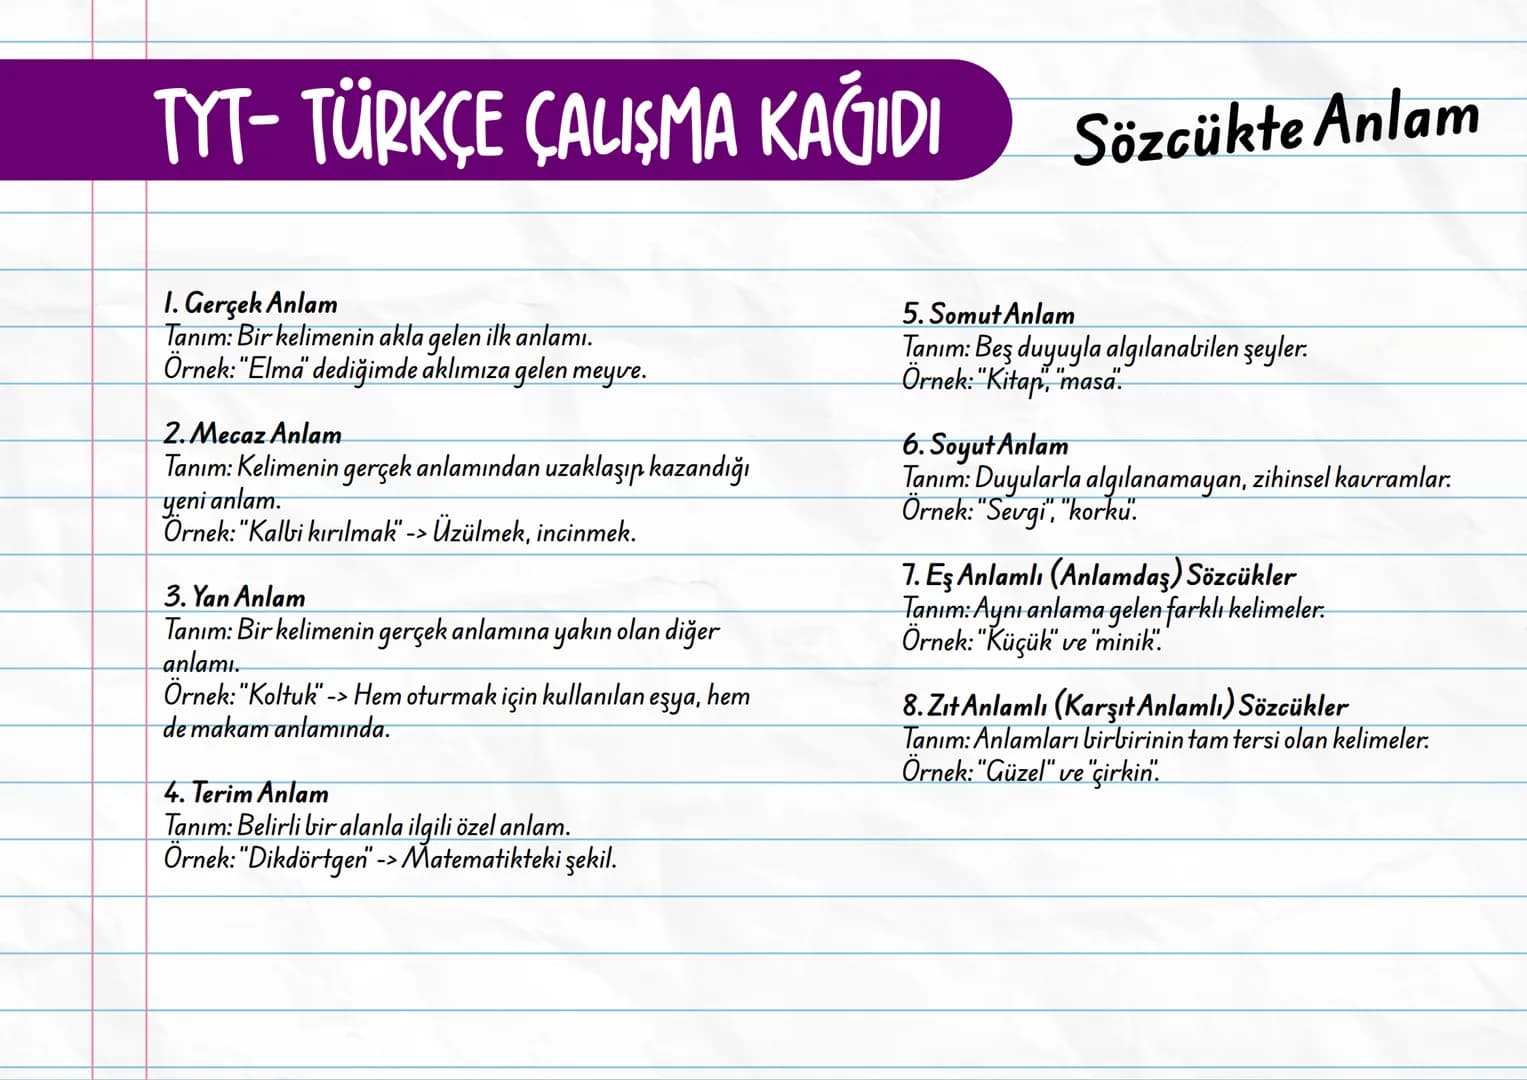 TYT- TÜRKÇE ÇALIŞMA KAĞIDI
Sözcükte Anlam
1. Gerçek Anlam
Tanım: Bir kelimenin akla gelen ilk anlamı.
Örnek: "Elma" dediğimde aklımıza gelen meyve.
2. Mecaz Anlam
Tanım: Kelimenin gerçek anlamından uzaklaşıp kazandığı
yeni anlam.
Örnek: "Kalbi kırılmak" -> Üzülmek, incinmek.
3. Yan Anlam
Tanım: Bir kelimenin gerçek anlamına yakın olan diğer
anlamı.
Örnek: "Koltuk" -> Hem oturmak için kullanılan eşya, hem
de makam anlamında.
4. Terim Anlam
Tanım: Belirli bir alanla ilgili özel anlam.
Örnek: "Dikdörtgen" -> Matematikteki şekil.
5. Somut Anlam
Tanım: Beş duyuyla algılanabilen şeyler.
Örnek: "Kitap", "masa".
6. Soyut Anlam
Tanım: Duyularla algılanamayan, zihinsel kavramlar.
Örnek: "Sevgi", "korku".
7. Eş Anlamlı (Anlamdaş) Sözcükler
Tanım: Aynı anlama gelen farklı kelimeler.
Örnek: "Küçük" ve "minik".
8. Zıt Anlamlı (Karşıt Anlamlı) Sözcükler
Tanım: Anlamları birbirinin tam tersi olan kelimeler.
Örnek: "Güzel" ve "çirkin".